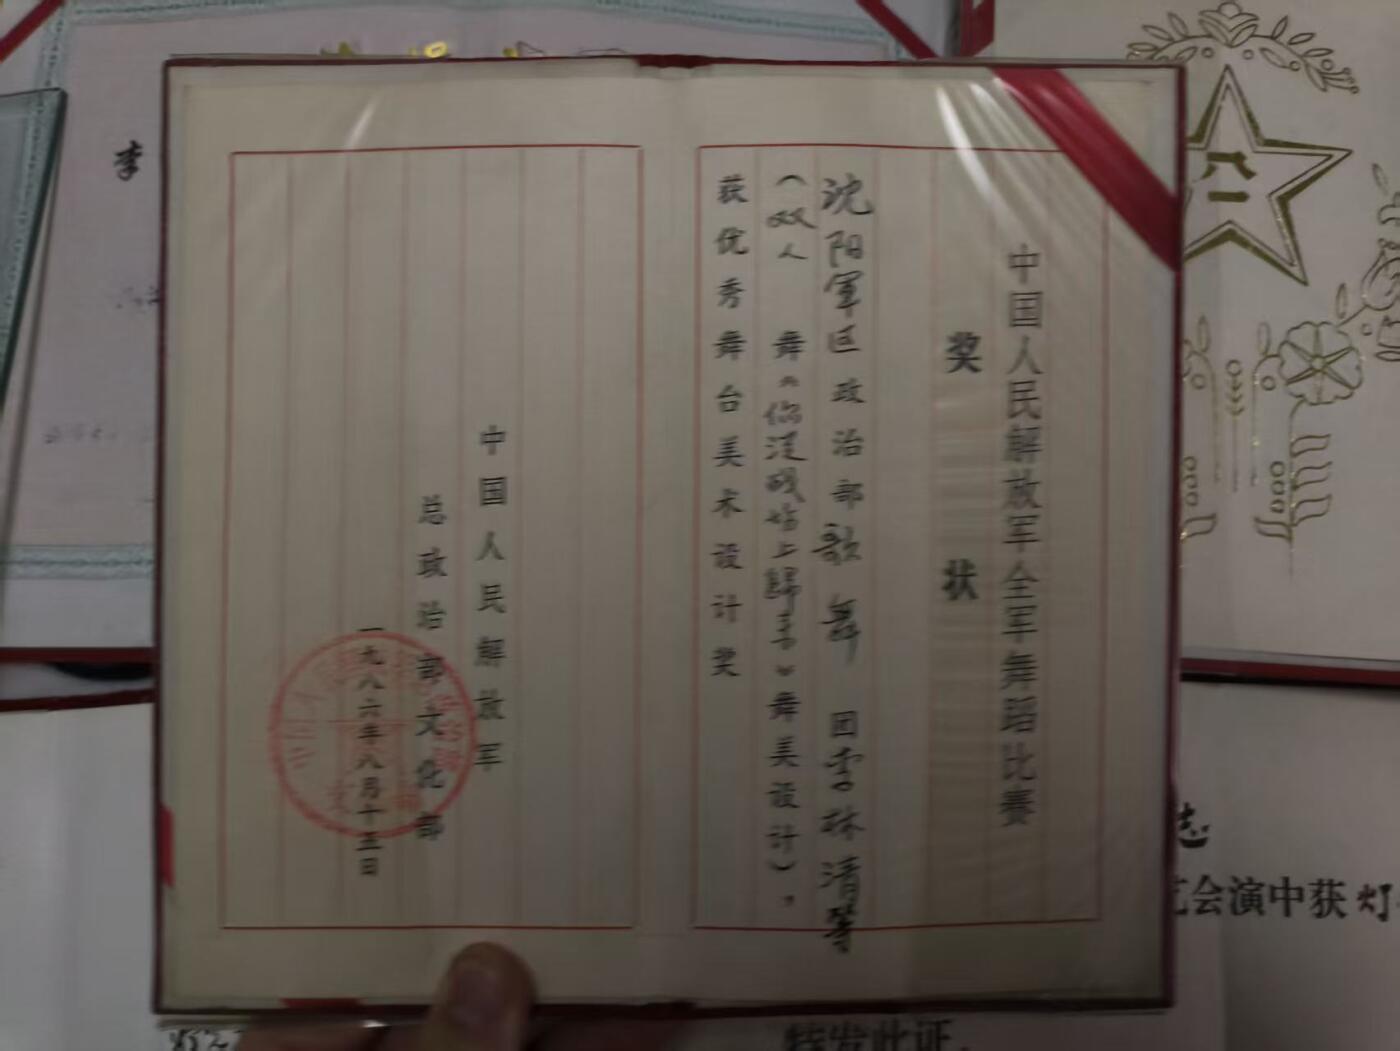 中国人民解放军全军舞蹈比赛
奖状
沈阳军区政治部歌舞团李林清等
（双人舞《你从战场上归来》舞美设计），
获优秀舞台美术设计奖
中国人民解放军
总政治部文化部
一九八六年八月十五日
李
八一
志
艺会演中获灯
特发此证